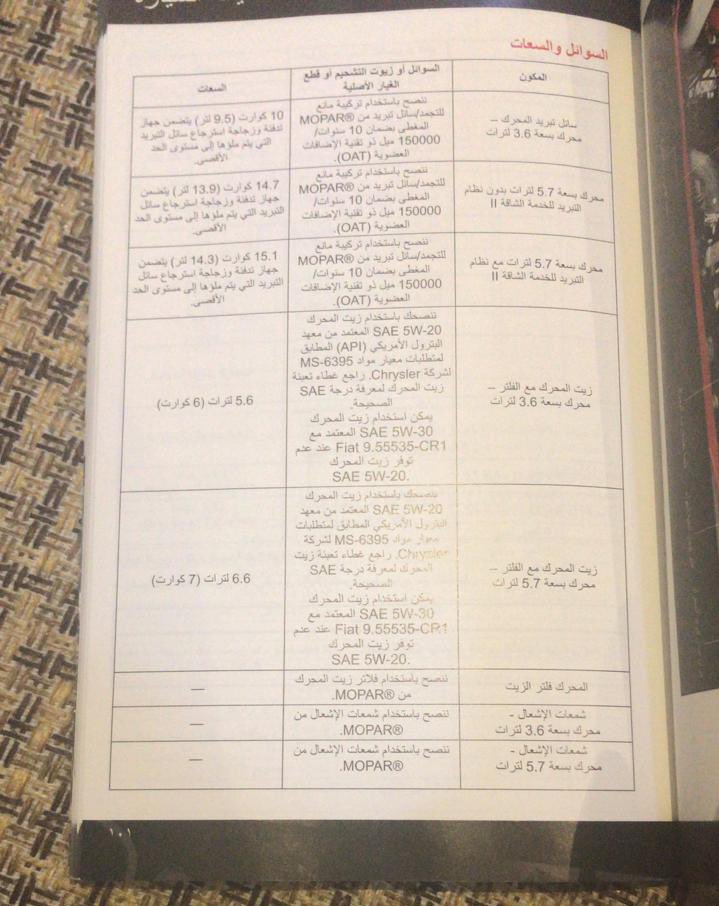 السوائل والسعات
المكون
السوائل أو زيوت التشحيم أو قطع
الغيار الأصلية
السعات
سائل تبريد المحرك –
محرك بسعة 3.6 لترات
ننصح باستخدام تركيبة مانع
للتجمد/سائل تبريد من MOPAR®
المغطى بضمان 10 سنوات/
150000 ميل ذو تقنية الإضافات
العضوية (OAT).
10 كوارت (9.5 لتر) يتضمن جهاز
تدفئة وزجاجة استرجاع سائل التبريد
التي يتم ملؤها إلى مستوى الحد
الأقصى.
محرك بسعة 5.7 لترات بدون نظام
التبريد للخدمة الشاقة II
ننصح باستخدام تركيبة مانع
للتجمد/سائل تبريد من MOPAR®
المغطى بضمان 10 سنوات/
150000 ميل ذو تقنية الإضافات
العضوية (OAT).
14.7 كوارت (13.9 لتر) يتضمن
جهاز تدفئة وزجاجة استرجاع سائل
التبريد التي يتم ملؤها إلى مستوى الحد
الأقصى.
محرك بسعة 5.7 لترات مع نظام
التبريد للخدمة الشاقة II
ننصح باستخدام تركيبة مانع
للتجمد/سائل تبريد من MOPAR®
المغطى بضمان 10 سنوات/
150000 ميل ذو تقنية الإضافات
العضوية (OAT).
15.1 كوارت (14.3 لتر) يتضمن
جهاز تدفئة وزجاجة استرجاع سائل
التبريد التي يتم ملؤها إلى مستوى الحد
الأقصى.
زيت المحرك مع الفلتر –
محرك بسعة 3.6 لترات
ننصحك باستخدام زيت المحرك
SAE 5W-20 المعتمد من معهد
البترول الأمريكي (API) المطابق
لمتطلبات معيار مواد MS-6395
لشركة Chrysler. راجع غطاء تعبئة
زيت المحرك لمعرفة درجة SAE
الصحيحة.
يمكن استخدام زيت المحرك
SAE 5W-30 المعتمد مع
Fiat 9.55535-CR1 عند عدم
توفر زيت المحرك
SAE 5W-20.
5.6 لترات (6 كوارت)
زيت المحرك مع الفلتر –
محرك بسعة 5.7 لترات
ننصحك باستخدام زيت المحرك
SAE 5W-20 المعتمد من معهد
البترول الأمريكي المطابق لمتطلبات
معيار مواد MS-6395 لشركة
Chrysler. راجع غطاء تعبئة زيت
المحرك لمعرفة درجة SAE
الصحيحة.
يمكن استخدام زيت المحرك
SAE 5W-30 المعتمد مع
Fiat 9.55535-CR1 عند عدم
توفر زيت المحرك
SAE 5W-20.
6.6 لترات (7 كوارت)
المحرك فلتر الزيت
ننصح باستخدام فلاتر زيت المحرك
من MOPAR®.
—
شمعات الإشعال -
محرك بسعة 3.6 لترات
ننصح باستخدام شمعات الإشعال من
MOPAR®.
—
شمعات الإشعال -
محرك بسعة 5.7 لترات
ننصح باستخدام شمعات الإشعال من
MOPAR®.
—